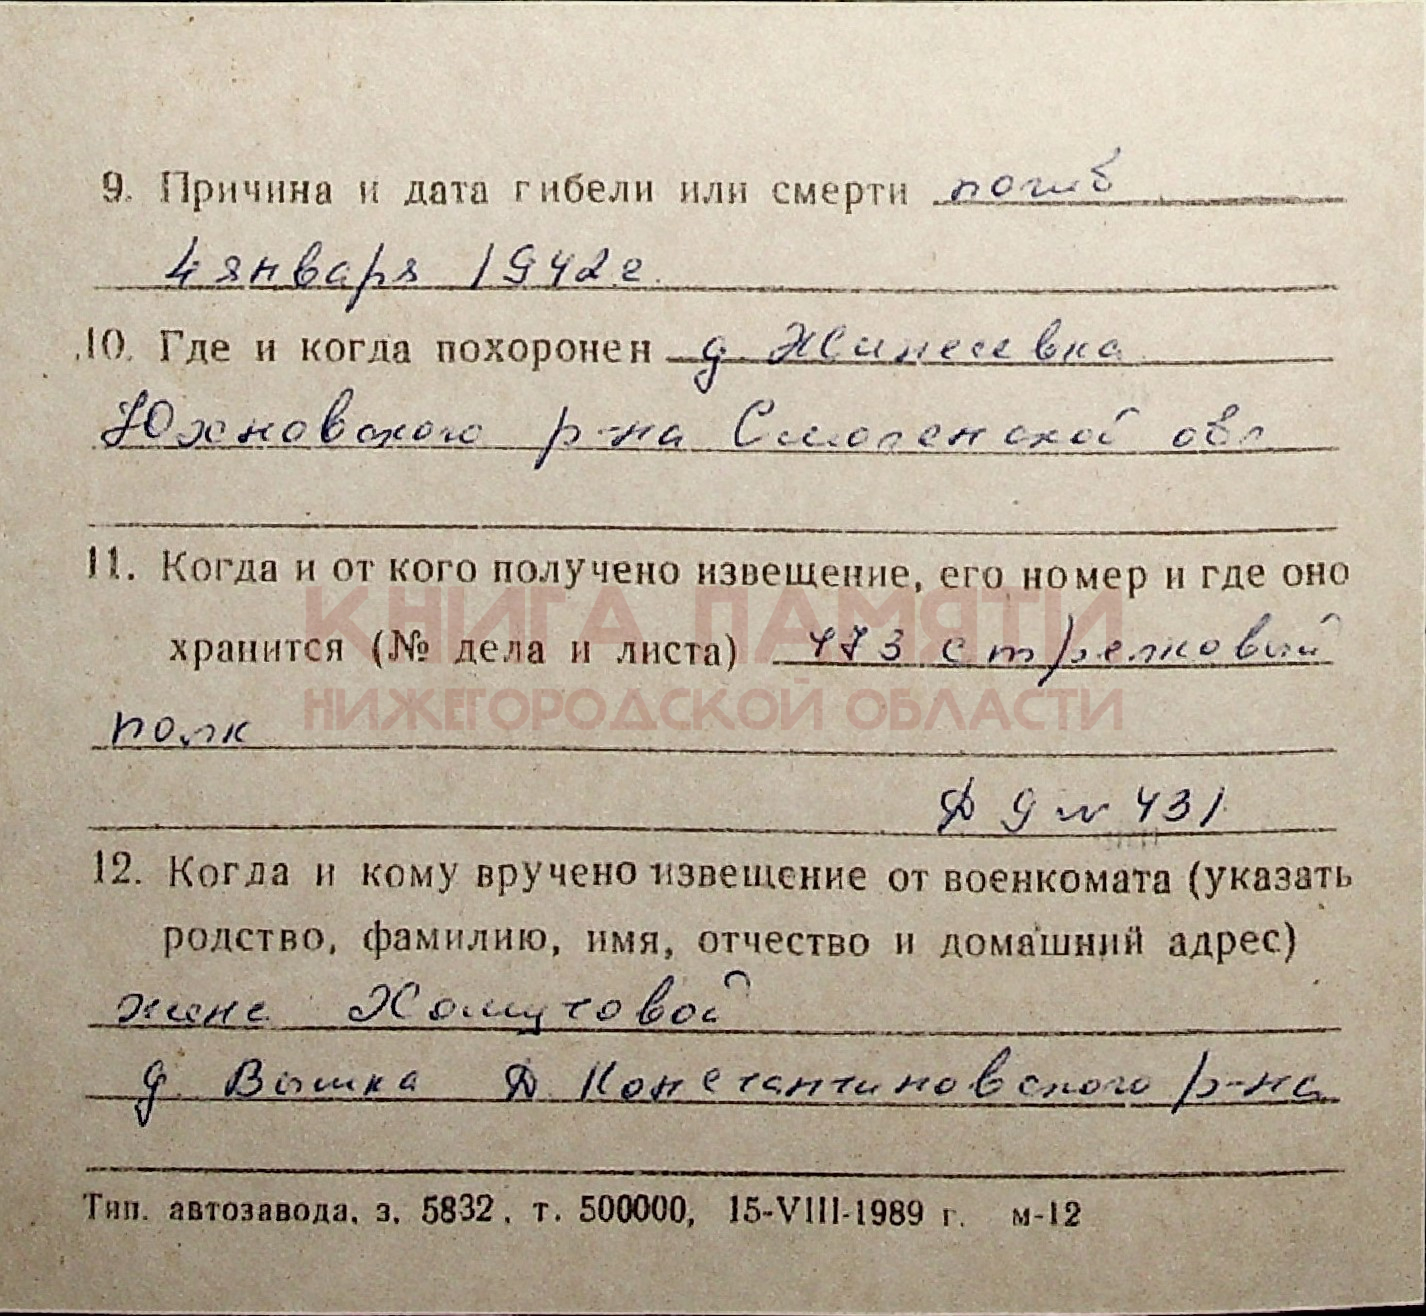 9. Причина и дата гибели или смерти погиб
4 января 1942 г.
10. Где и когда похоронен д
Юхновского р-на Смоленской обл
11. Когда и от кого получено извещение, его номер и где оно
КНИГА ПАМЯТИ
хранится (№ дела и листа) 473 стрелковый
НИЖЕГОРОДСКОЙ ОБЛАСТИ
полк
Д 9 л 431
12. Когда и кому вручено извещение от военкомата (указать
родство, фамилию, имя, отчество и домашний адрес)
жене Хомутовой
д. Вышка Д. Константиновского р-на
Тип. автозавода, з. 5832, т. 500000, 15-VIII-1989 г. м-12